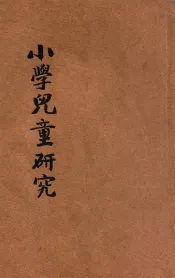 小學兒童研究